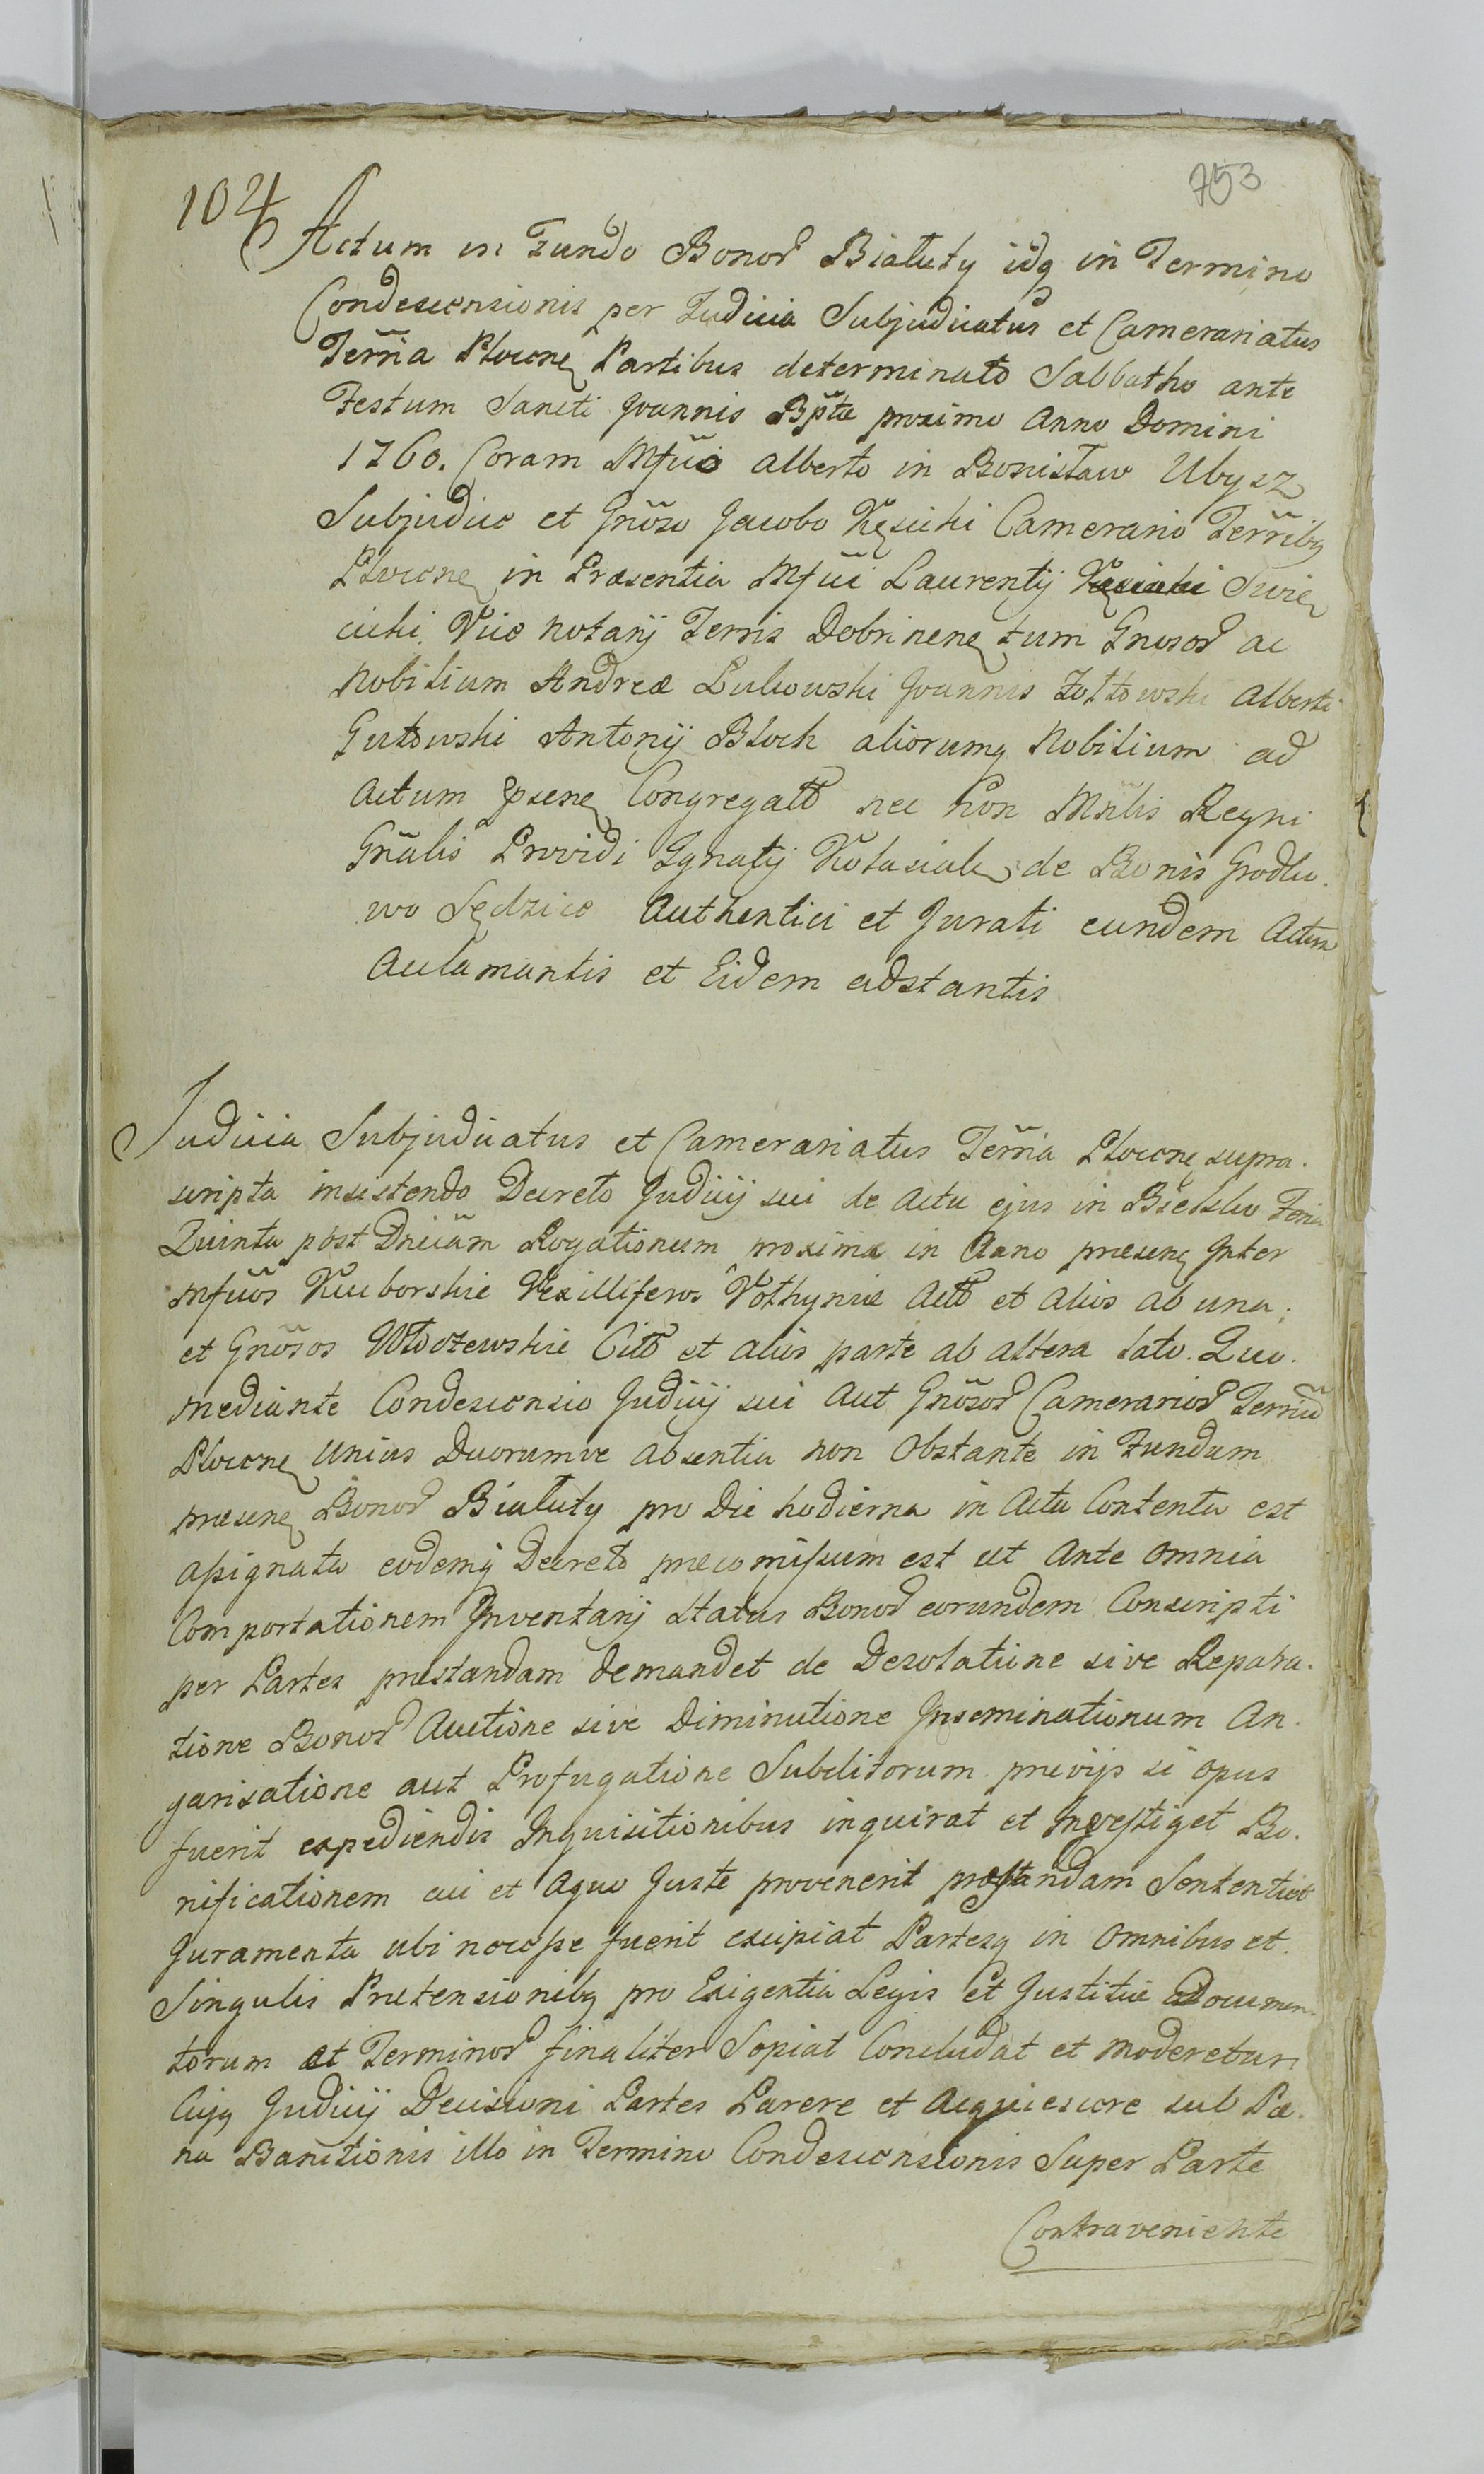 753
104
Actum in Fundo Bonor Białuty idq in Termino
Condescensionis per Judicia Subjudicatus et Camerariatus
Terria Plocen Partibus determinato Sabbatho ante
Festum Sancti Joannis Bptæ proximo Anno Domini
1760. Coram Mfco Alberto in Bonisław Ubysz
Subjudice et Gnoso Jacobo Kęsicki Camerario Terribq
Plocen in Præsentia Mfci Laurentij Swie
cicki Vice Notarij Terris Dobrinen tum Gnosor ac
Nobilium Andreæ Lukowski Joannis Żółtowski Alberti
Gutowski Antonij Bloch aliorumq Nobilium ad
Actum psene Congregatt nec non Mnlis Regni
Gnalis Providi Ignatij de Bonis Grodko.
wo Sędzice Authentici et Jurati eundem Actum
Aclamantis et Eidem adstantis
Judicia Subjudicatus et Camerariatus Terria Plocen supra.
scripta insistendo Decreto Judicij sui de Actu ejus in Bielsko Feria
Quinta post Dnicam Rogationum proxima in Anno præsen Inter
Mfcos Kuciborskie Vexilliferos Vołhyniæ Actt et alios ab una,
et Gnosos Włoczewskie Citt et aliis parte ab altera lato. Quo.
mediante Condescensio Judicij sui Aut Gnosor Camerarior Terriu
Plocen Unius Duorumve Absentia non Obstante in Fundum
præsen Bonor Białuty pro Die hodierna in Actu Contenta est
assignata eodemq Decreto præcomissum est ut Ante omnia
Comportationem Inventarij Status Bonor eorundem Conscripti
per Partes præstandam demandet de Desolatione sive Repara.
tione Bonor Auctione sive Diminutione Inseminationum An.
garisatione aut Profugatione Subditorum previjs si opus
fuerit expediendis Inquisitionibus inquirat et Investiget Bo.
nificationem cui et Aquo Juste provenerit præstandam Sententiet
Juramenta ubi necesse fuerit excipiat Partesq in Omnibus et
Singulis Prætensionibq pro Exigentia Legis et Justitiæ Documen
torum et Terminor finaliter Sopiat Concludat et Moderetur
Cujq Judicij Decisioni Partes Parere et Acquiescere sub Pæ.
na Banitionis illo in Termino Condescensionis Super Parte
Contraveniente